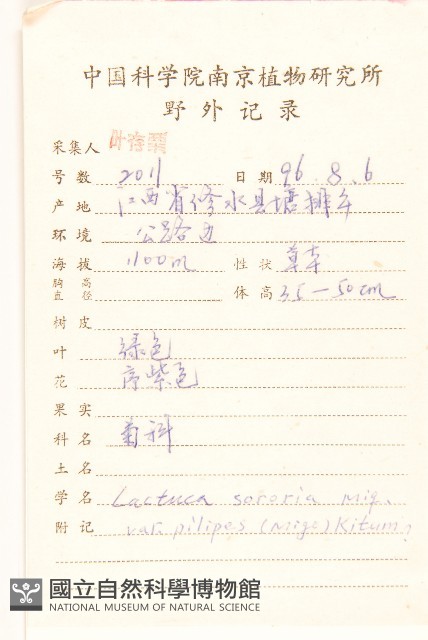 中国科学院南京植物研究所
野外记录
采集人 叶存粟
号数 2011 日期 96.8.6
产地 江西省修水县塘排乡
环境 公路边
海拔 1100m 性状 草本
胸高直径 体高 35—50cm
树皮
叶 绿色
花 序紫色
果实
科名 菊科
土名
学名 Lactuca sororia Miq.
附记 var. pilipes (Migo) Kitam.
國立自然科學博物館
NATIONAL MUSEUM OF NATURAL SCIENCE